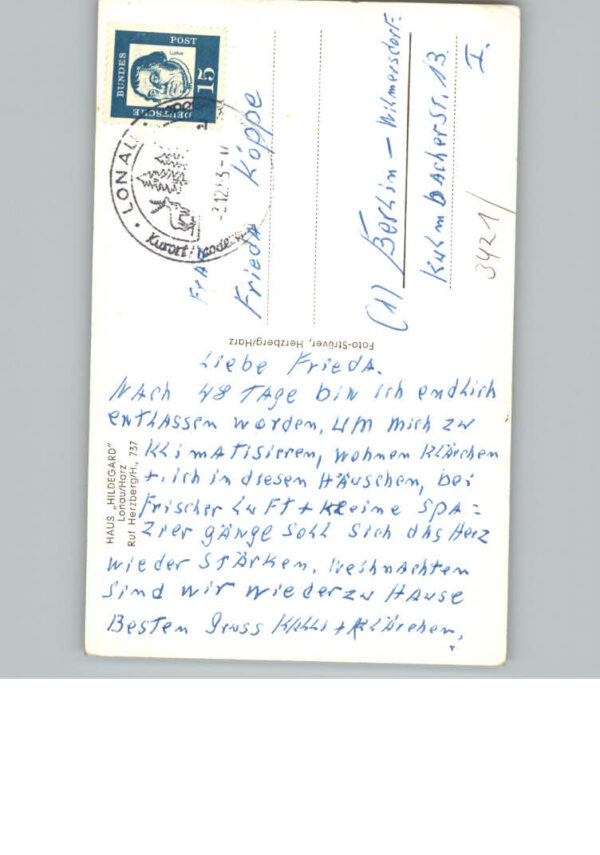 Liebe Frieda.
Nach 48 Tage bin ich endlich
entlassen worden, um mich zu
klimatisieren, wohnen Klärchen
+ ich in diesen Häuschen, bei
frischer Luft + kleine Spa=
ziergänge soll sich das Herz
wieder stärken. Weihnachten
sind wir wieder zu Hause
Besten Gruss Kalli + Klärchen.
HAUS „HILDEGARD"
Lonau/Harz
Ruf Herzberg/H., 737
Foto-Strüver, Herzberg/Harz
DEUTSCHE
BUNDES
POST
15
Luther
LONAU
-3.12.63-11
Kurort
Frau
Frieda Köppe
(1) Berlin - Wilmersdorf.
Kulmbacherstr. 13.
I.
3421/